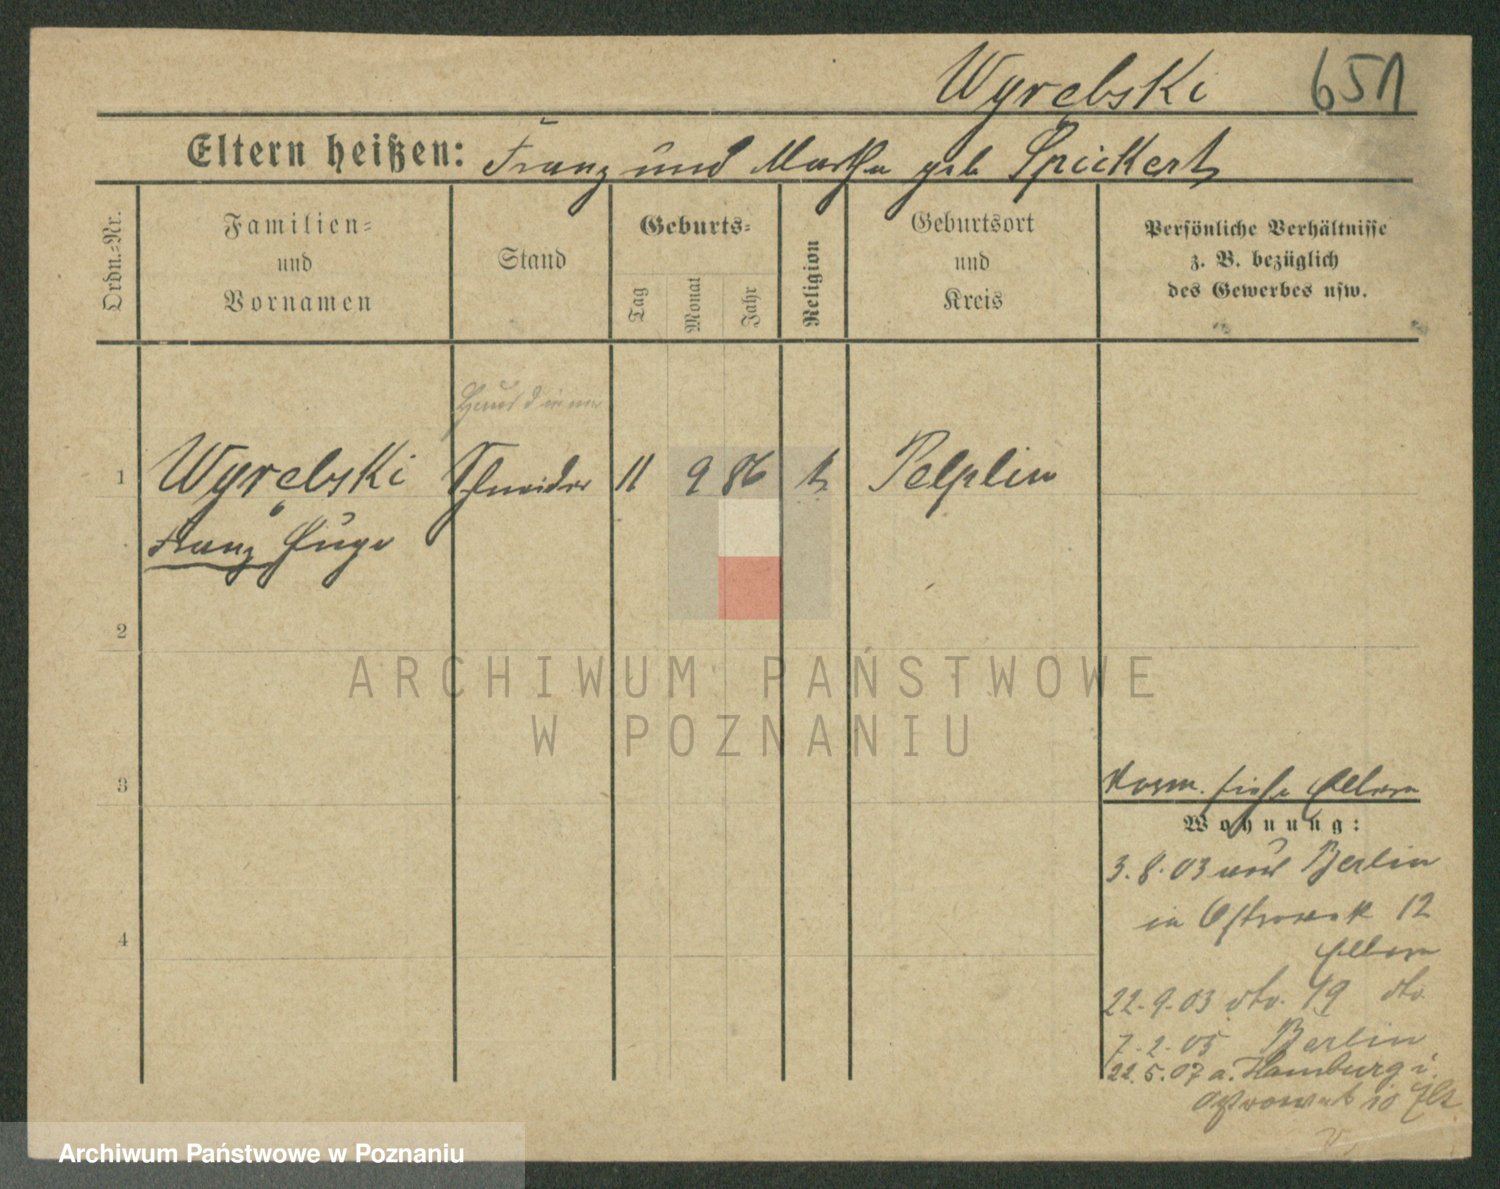 Wyrebski 651
Eltern heißen: Franz und Martha geb Spickert
Ordn.-Nr.
Familien-
und
Vornamen
Stand
Geburts-
Tag
Monat
Jahr
Religion
Geburtsort
und
Kreis
Persönliche Verhältnisse
z. B. bezüglich
des Gewerbes usw.
1 Wyrebski Schneider 11 9 86 k Pelplin
Franz Hugo
2
3
4
Vorm. siehe Eltern
Wohnung:
3.8.03 aus Berlin
in Ostrowek 12
Eltern
22.9.03 dto. 19 dto
7.2.05 Berlin
22.5.07 a. Hamburg i.
Ostrowek 10
ARCHIWUM PAŃSTWOWE
W POZNANIU
Archiwum Państwowe w Poznaniu